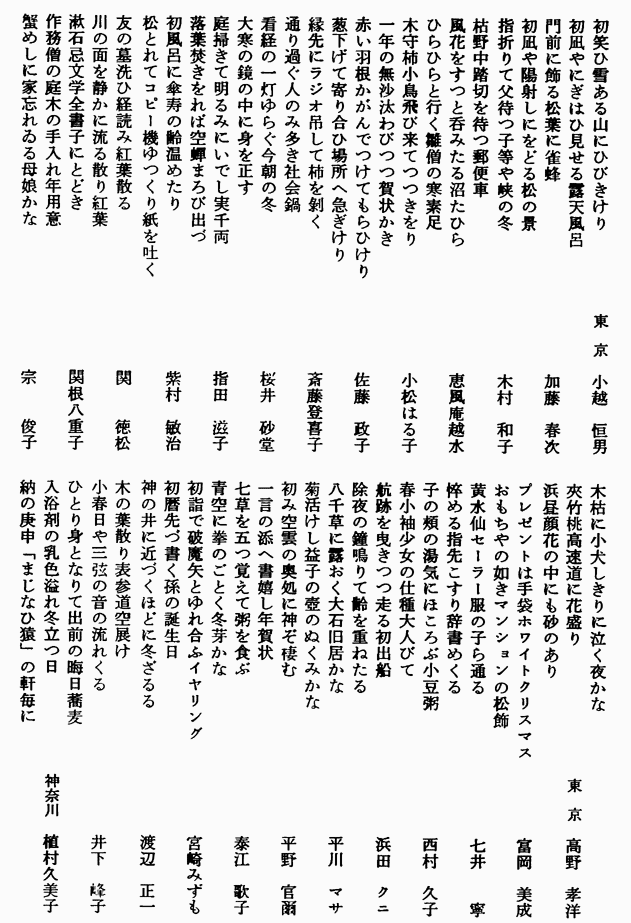 初笑ひ雪ある山にひびきけり
東京 小越 恒男
初凪やにぎはひ見せる露天風呂
門前に飾る松葉に雀蜂
加藤 春次
初凪や陽射しにをどる松の景
指折りて父待つ子等や峡の冬
木村 和子
枯野中踏切を待つ郵便車
風花をすつと呑みたる沼たひら
恵風庵越水
ひらひらと行く雛僧の寒素足
木守柿小鳥飛び来てつつきをり
小松はる子
一年の無沙汰わびつつ賀状かき
赤い羽根かがんでつけてもらひけり
佐藤 政子
葱下げて寄り合ひ場所へ急ぎけり
縁先にラジオ吊して柿を剝く
斎藤登喜子
通り過ぐ人のみ多き社会鍋
看経の一灯ゆらぐ今朝の冬
桜井 砂堂
大寒の鏡の中に身を正す
庭掃きて明るみにいでし実千両
指田 滋子
落葉焚きをれば空蟬まろび出づ
初風呂に傘寿の齢温めたり
紫村 敏治
松とれてコピー機ゆつくり紙を吐く
友の墓洗ひ経読み紅葉散る
関 徳松
川の面を静かに流る散り紅葉
漱石忌文学全書子にとどき
関根八重子
作務僧の庭木の手入れ年用意
蟹めしに家忘れゐる母娘かな
宗 俊子
木枯に小犬しきりに泣く夜かな
夾竹桃高速道に花盛り
東京 高野 孝洋
浜昼顔花の中にも砂のあり
プレゼントは手袋ホワイトクリスマス
富岡 美成
おもちやの如きマンションの松飾
黄水仙セーラー服の子ら通る
七井 寧
悴める指先こすり辞書めくる
子の頰の湯気にほころぶ小豆粥
西村 久子
春小袖少女の仕種大人びて
航跡を曳きつつ走る初出船
浜田 クニ
除夜の鐘鳴りて齢を重ねたる
八千草に露おく大石旧居かな
平川 マサ
菊活けし益子の壺のぬくみかな
初み空雲の奥処に神ぞ棲む
平野 官爾
一言の添へ書嬉し年賀状
七草を五つ覚えて粥を食ぶ
泰江 歌子
青空に拳のごとく冬芽かな
初詣で破魔矢とゆれ合ふイヤリング
宮崎みずも
初暦先づ書く孫の誕生日
神の井に近づくほどに冬ざるる
渡辺 正一
木の葉散り表参道空展け
小春日や三弦の音の流れくる
井下 峰子
ひとり身となりて出前の晦日蕎麦
入浴剤の乳色溢れ冬立つ日
神奈川 植村久美子
納の庚申「まじなひ猿」の軒毎に